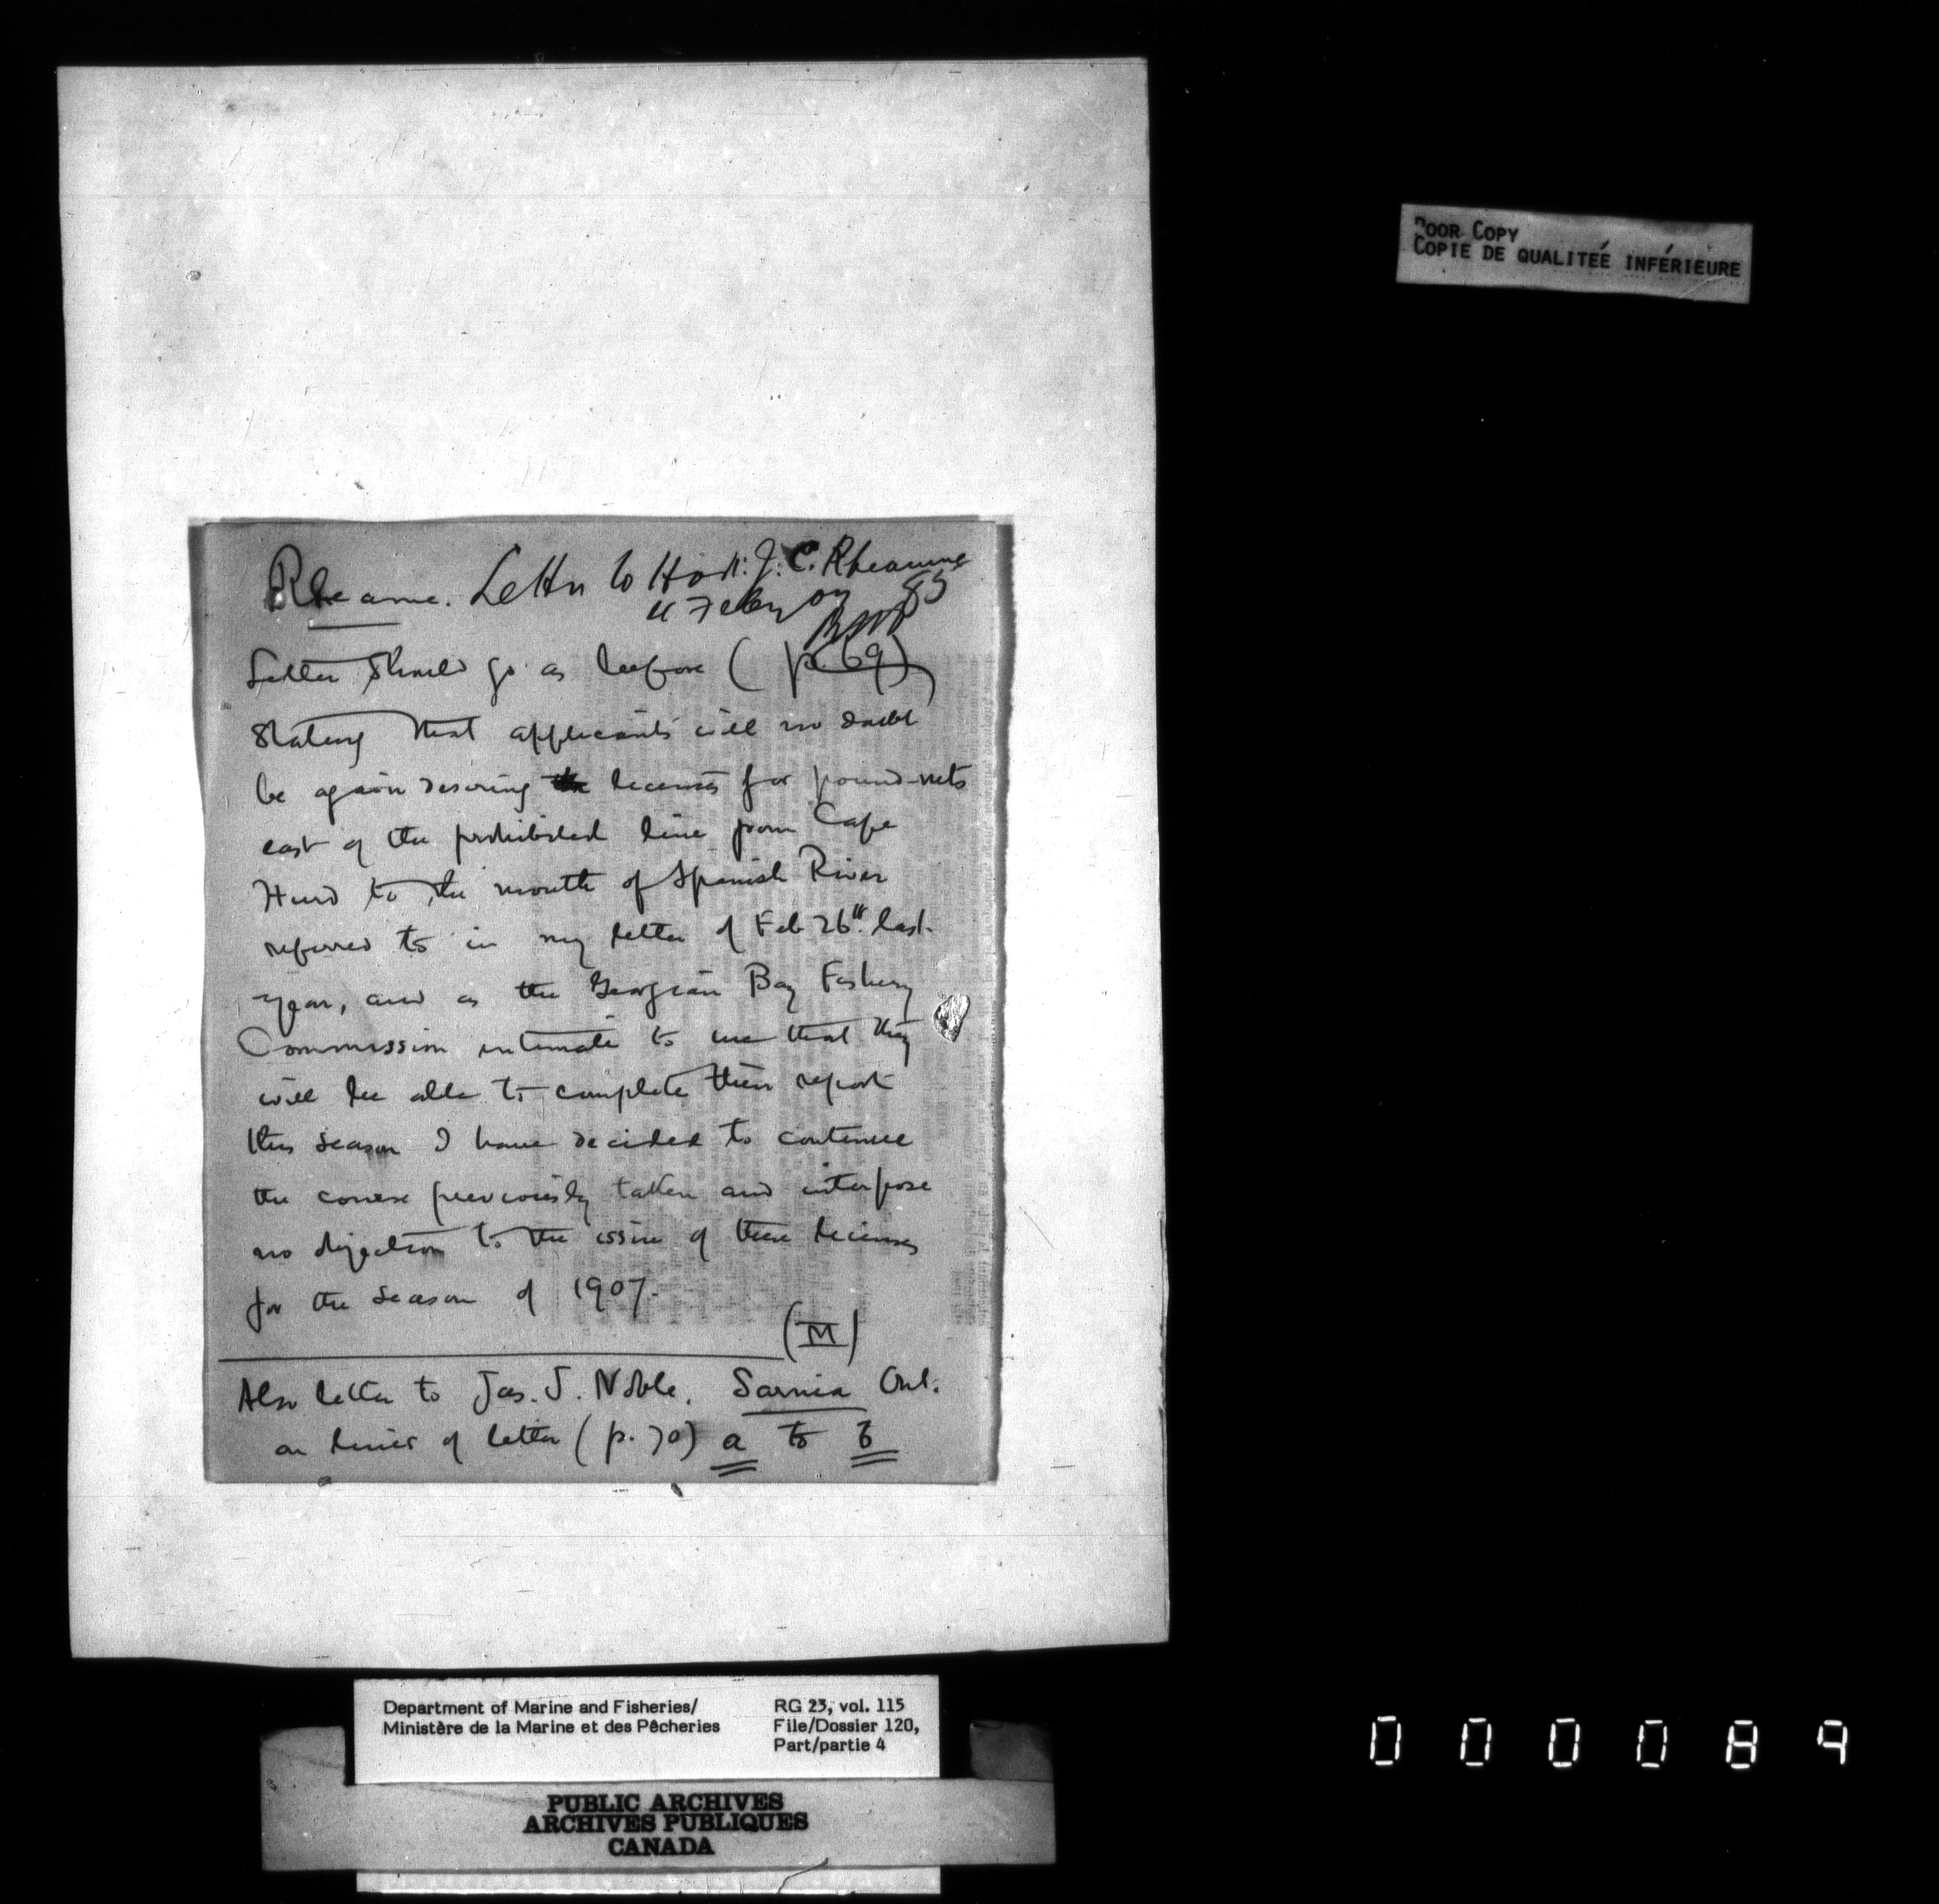 Rheame. Letter to Hon: J. C. Rheaume
11 Feby 07 85
Letter should go as before (p. 69)
stating that applicants will no doubt
be again desiring licenses for pound-nets
east of the prohibited line from Cape
Hurd to the mouth of Spanish River
referred to in my letter of Feb 26th last
year, and as the Georgian Bay Fishery
Commission intimate to me that they
will be able to complete their report
this season I have decided to continue
the course previously taken and interpose
no objection to the issue of these licenses
for the season of 1907.
(M)
Also letter to Jas. J. Noble, Sarnia Ont.
on lines of letter (p. 70) a to b
POOR COPY
COPIE DE QUALITÉE INFÉRIEURE
Department of Marine and Fisheries/
Ministère de la Marine et des Pêcheries
RG 23, vol. 115
File/Dossier 120,
Part/partie 4
PUBLIC ARCHIVES
ARCHIVES PUBLIQUES
CANADA
000089